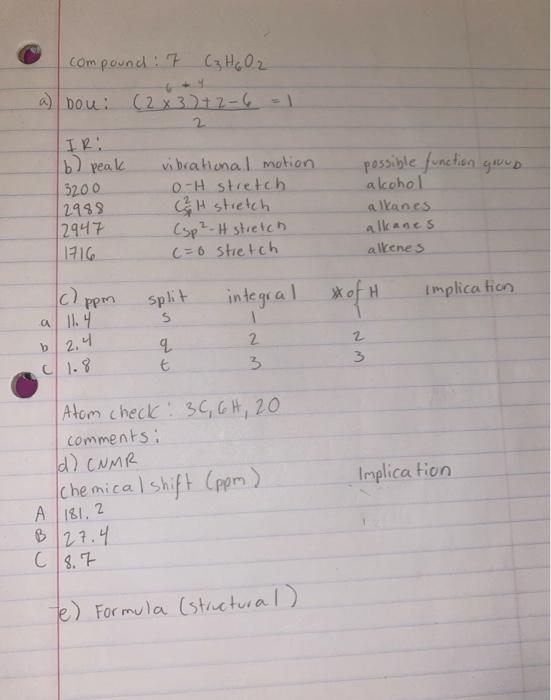 compound: 7 C3H6O2
6 + 4
a) DOU: (2 x 3)+2-6 = 1
2
IR:
b) peak vibrational motion possible function group
3200 O-H stretch alcohol
2988 Csp2-H stretch alkanes
2947 Csp2-H stretch alkanes
1716 C=O stretch alkenes
c) ppm split integral # of H Implication
a 11.4 s 1 1
b 2.4 q 2 2
c 1.8 t 3 3
Atom check: 3C, 6H, 2O
comments:
d) CNMR
chemical shift (ppm) Implication
A 181.2
B 27.4
C 8.7
e) Formula (structural)